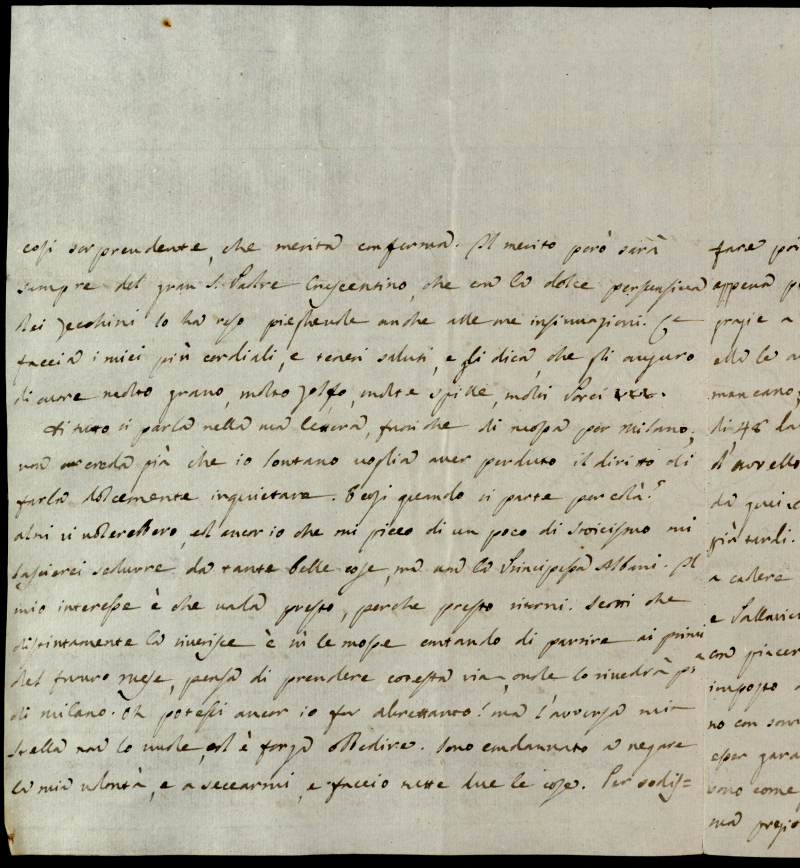 così sorprendente, che merita conferma. Il merito però sarà
sempre del gran S. Padre Crescentino, che con la dolce persuasiva
dei zecchini lo ha reso pieghende anche alle me insinuazioni. Ge
faccia i miei più cordiali, e teneri saluti, e gli dica, che gli auguro
di cuore molto grano, molto zolfo, molte spille, molti Porci
di tutto si parla nella sua lettera, fuori che di mossa per Milano;
non creda già che io lontano voglia aver perduto il diritto di
farla dolcemente inquietare. E così quando si parte per colà?
altri vi volerebbero, ed ancor io che mi picco di un poco di stoicismo mi
lascierei sedurre da tante belle cose, ma non la Principessa Albani. Il
mio interesse è che vada presto, perche presto ritorni. Scotti che
distintamente la riverisce è sù le mosse contando di partire ai primi
del futuro mese, pensa di prendere codesta via, onde lo rivedrà
di Milano. Oh potessi ancor io far altrettanto! ma l'avversa mia
stella non lo vuole, ed è forza obbedire. Sono condannato a negare
la mia volontà, e a seccarmi, e faccio tutte due le cose. Per sodis=
fare
appena
grazie a
ella le
mancano;
di 48 da
d'
da
già tardi.
a cadere
e Pallavici
con piacer
imposto
no con
esser
sono come
ma